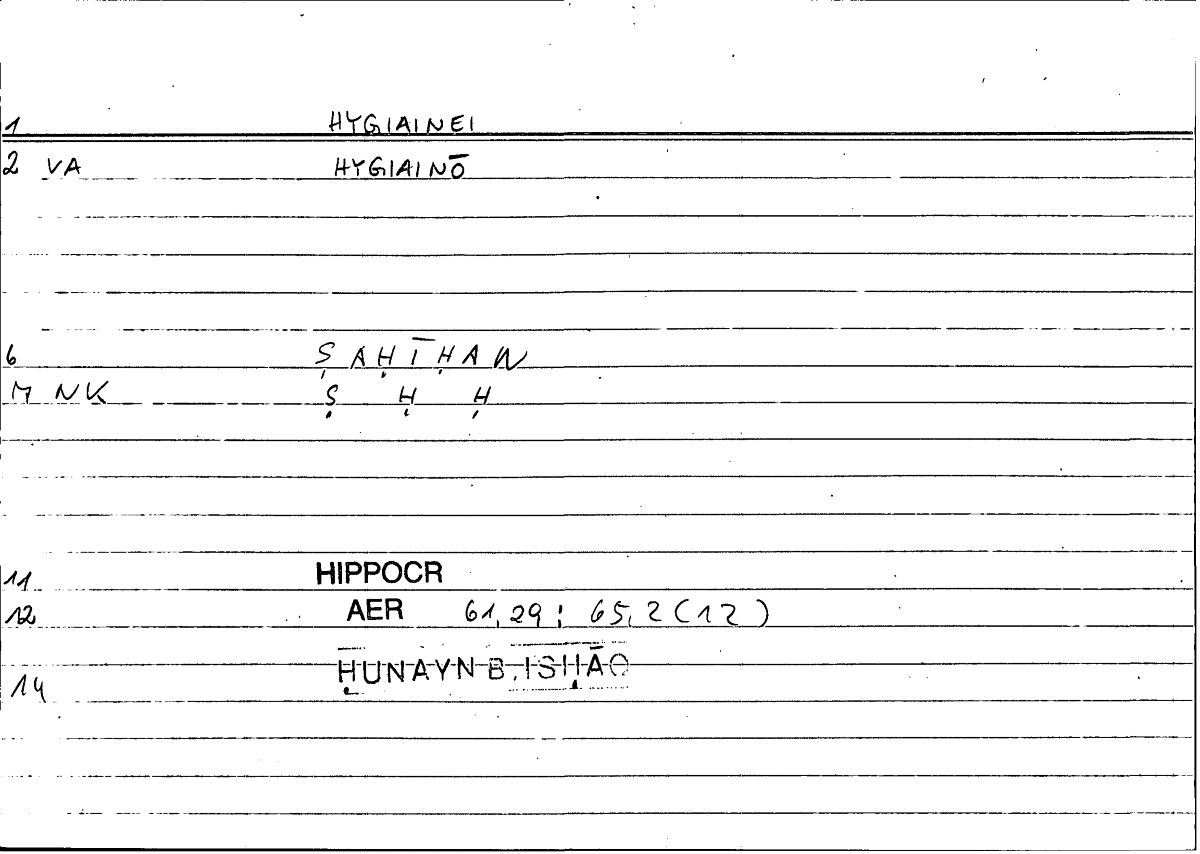 1 HYGIAINEI
2 VA HYGIAINŌ
6 ṢAḤĪḤAN
7 NK Ṣ Ḥ Ḥ
11 HIPPOCR
12 AER 61,29; 65,2 (12)
14 ḤUNAYN B. ISḤĀQ